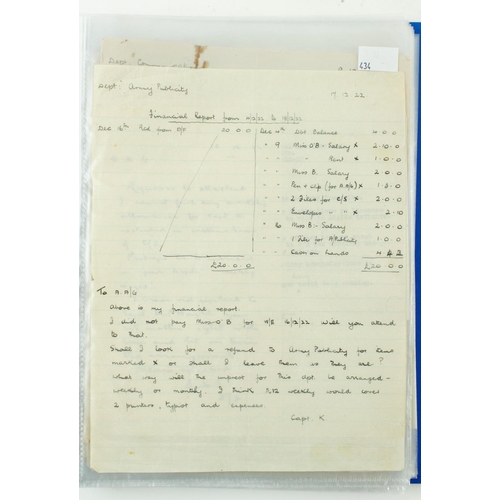 Dept. Comm
434
Dept. Army Publicity
9.12.22
Financial Report from 4/12/22 to 9/12/22
Dec 4th Rec from D/P 20.0.0 Dec 4th Old Balance 4.0.0
" 9 Miss O'B - Salary x 2.0.0
" " " Rent x 1.0.0
" " Miss B. Salary 2.0.0
" " Pen & clip (for A.A/G) x
" " 2 Files for C/S x 2.0.0
" " Envelopes " " x 2.10
" 6 Miss B - Salary 2.0.0
" " 1 File for A/Publicity 1.0.0
" " Cash on hands
£20.0.0 £20.0.0
To A.A/G
Above is my financial report.
I did not pay Miss O'B for W/E 16/12/22. Will you attend
to that.
Shall I look for a refund to Army Publicity for items
marked x or shall I leave them as they are?
What way will the imprest for this Dpt. be arranged -
weekly or monthly. I think £12 weekly would cover
2 printers, typist and expenses.
Capt. K